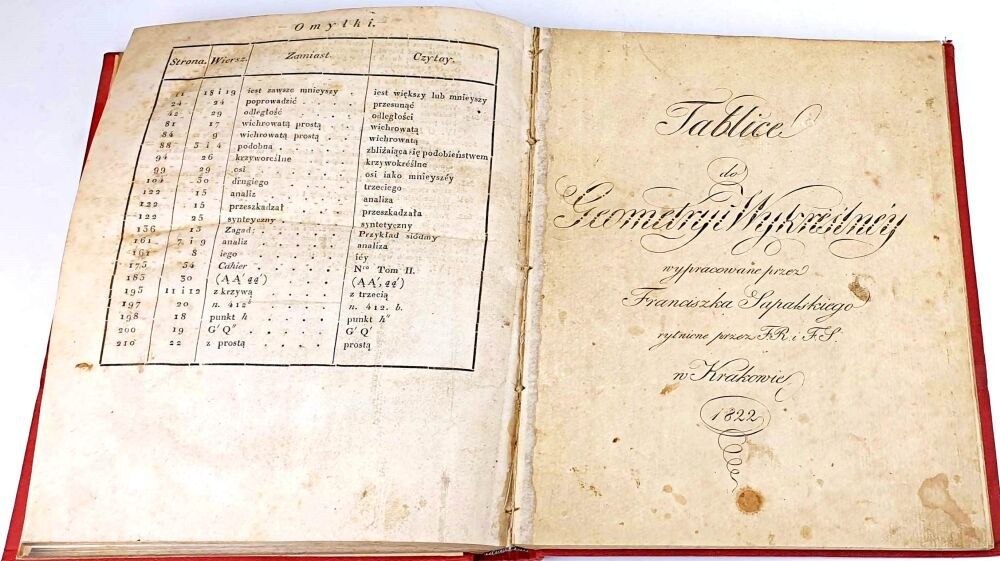 Omyłki.
Strona. Wiersz. Zamiast. Czytay.
21 18 i 19 iest zawsze mnieyszy . iest większy lub mnieyszy
24 24 poprowadzić . . . przesunąć
42 29 odległość . . . . odległości
81 17 wichrowatą prostą . . wichrowatą
84 9 wichrowatą prostą . . wichrowatą
88 3 i 4 podobna . . . . zbliżaiąca się podobieństwem
94 26 krzyworeślne . . . krzywokréślne
99 29 osi . . . . osi iako mnieyszéy
104 30 drugiego . . . . trzeciego
122 15 analiz . . . . analiza
122 15 przeszkadzał . . . przeszkadzała
122 25 synteyczny . . . syntetyczny
136 13 Zagad: . . . . Przykład siódmy
161 7 i 9 analiz . . . . analiza
161 8 iego . . . . iéy
175 34 Cahier . . . . Nro Tom II.
183 30 (ĄĄ' ąą') . . . . (ĄĄ', ąą')
195 11 i 12 z krzywą . . . . z trzecią
197 20 n. 412b . . . . n. 412. b.
198 18 punkt h . . . . punkt h"
200 19 G' Q" . . . . G' Q'
210 22 z prostą . . . . prostą
Tablice
do
Geometryi Wykreślnéy
wypracowane przez
Franciszka Sapalskiego
rytnione przez F.R. i F.S.
w Krakowie
1822